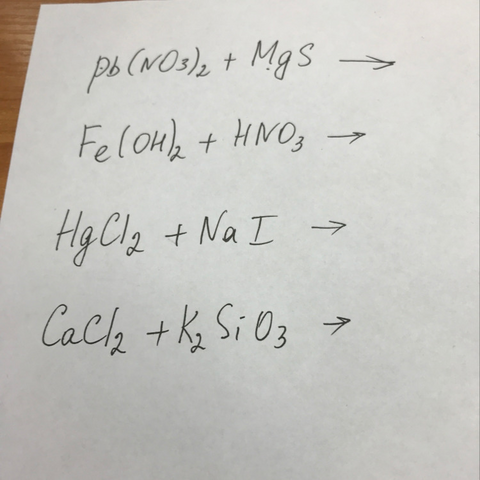 Pb(NO3)2 + MgS →
Fe(OH)2 + HNO3 →
HgCl2 + NaI →
CaCl2 + K2SiO3 →